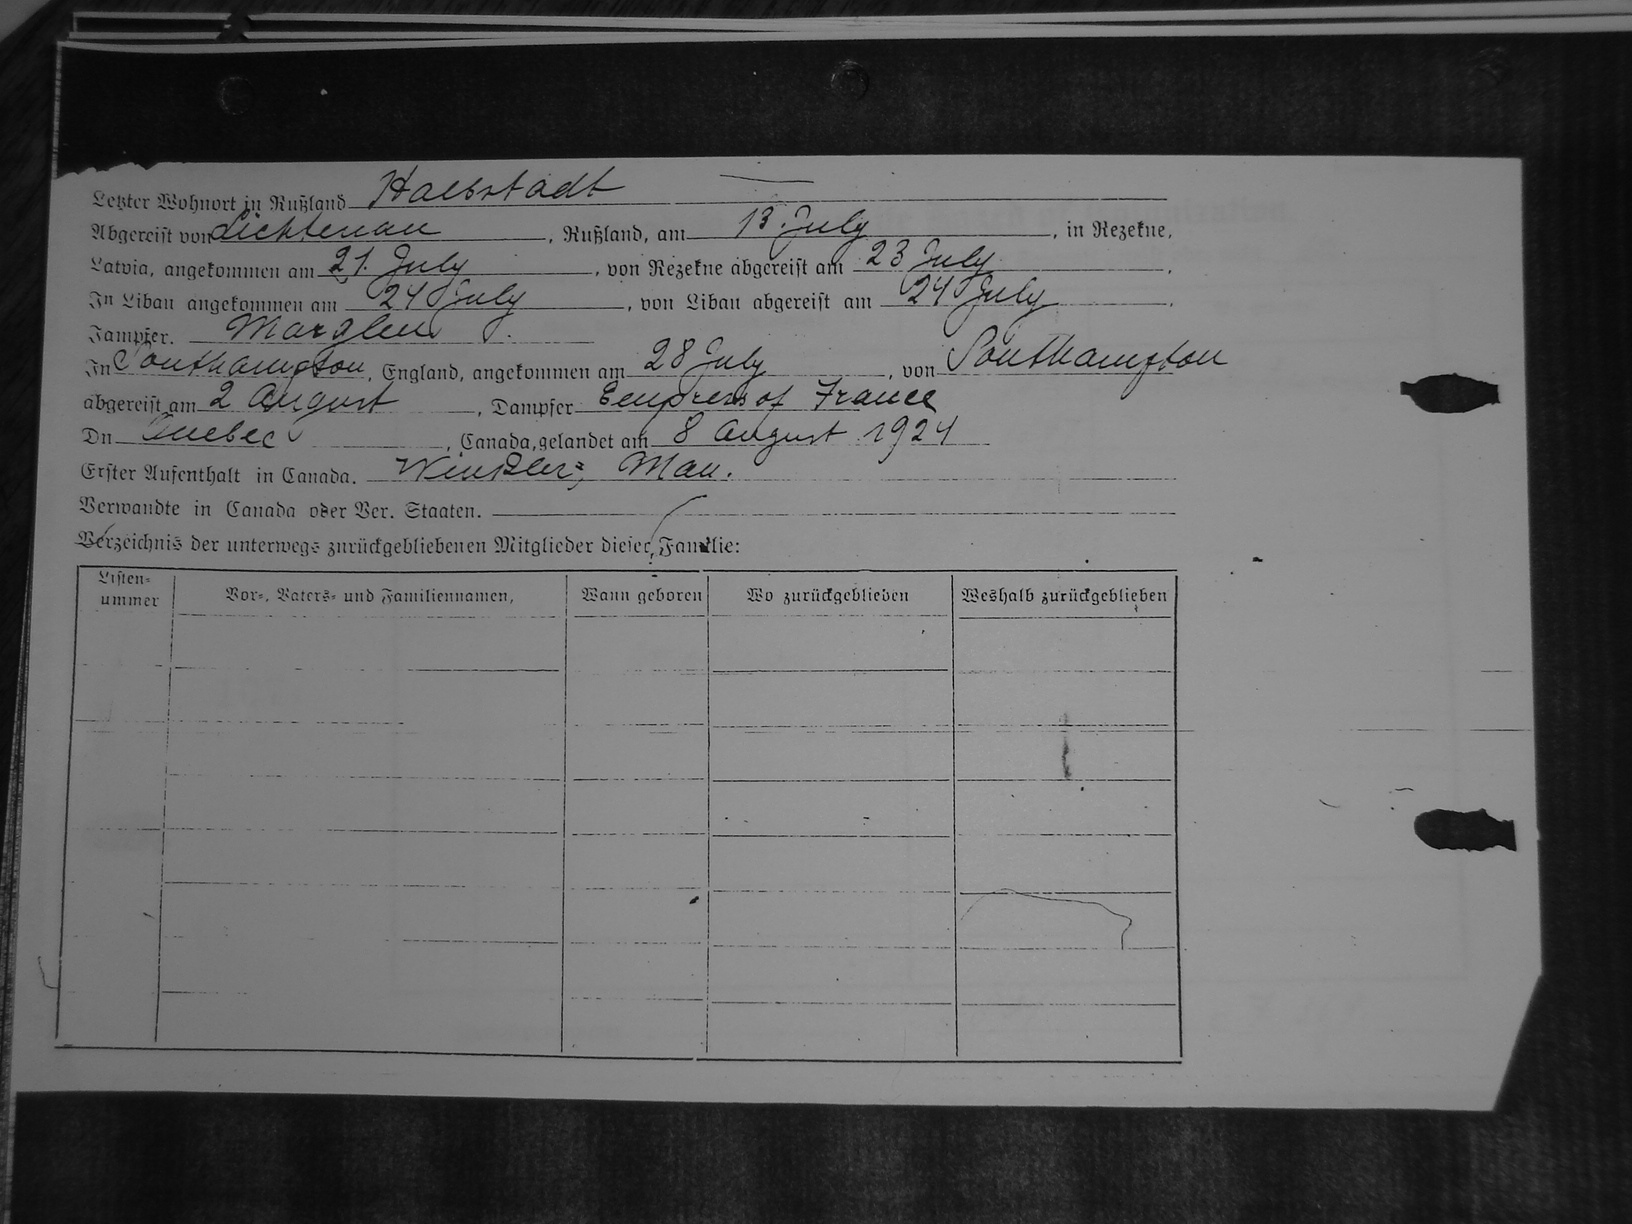 Letzter Wohnort in Rußland Halbstadt
Abgereist von Lichtenau, Rußland, am 13. July, in Rezekne,
Latvia, angekommen am 21. July, von Rezekne abgereist am 23 July,
In Libau angekommen am 24 July, von Libau abgereist am 24 July,
Jampfer.
In Southampton, England, angekommen am 28 July, von Southampton
abgereist am 2 August, Dampfer Empress of France
Dn Quebec, Canada, gelandet am 8 August 1924
Erster Aufenthalt in Canada. Winkler, Man.
Verwandte in Canada oder Ver. Staaten.
Verzeichnis der unterwegs zurückgebliebenen Mitglieder dieser Familie:
Listen=
ummer Vor=, Vaters= und Familiennamen, Wann geboren Wo zurückgeblieben Weshalb zurückgeblieben